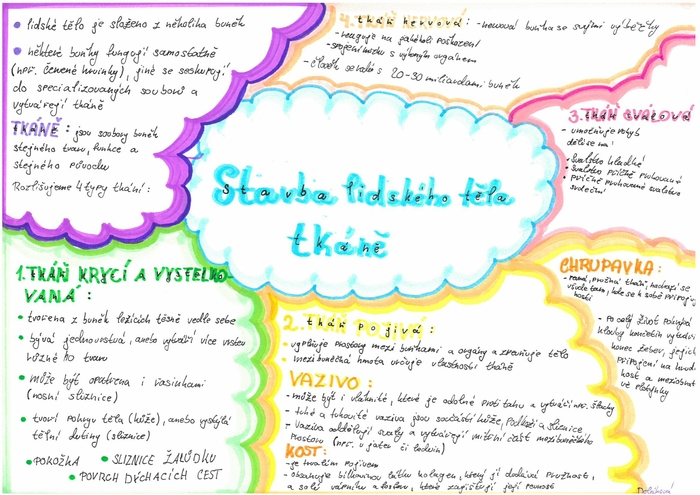 • lidské tělo je složeno z několika buněk
• některé buňky fungují samostatně
(např. červené krvinky), jiné se seskupují
do specializovaných souborů a
vytvářejí tkáně
TKÁNĚ: jsou soubory buněk
stejného tvaru, funkce a
stejného původu
Rozlišujeme 4 typy tkání:
4. tkáň nervová: - nervová buňka se svými výběžky
- reaguje na jakékoli poškození
- spojení mozku s výkonným orgánem
- člověk se rodí s 20-30 miliardami buněk
3. TKÁŇ SVALOVÁ
- umožňuje pohyb
dělíme na:
• Svalstvo hladké
• Svalstvo příčně pruhované
• příčně pruhované svalstvo
srdeční
Stavba lidského těla
tkáně
1. TKÁŇ KRYCÍ A VYSTELKO-
VANÁ:
• tvořena z buněk ležících těsně vedle sebe
• bývá jednovrstvá, anebo vytváří více vrstev
různého tvaru
• může být opatřena i vlasinkami
(nosní sliznice)
• tvoří pokryv těla (kůže), anebo vystýlá
tělní dutiny (sliznice)
• POKOŽKA • SLIZNICE ŽALUDKU
• POVRCH DÝCHACÍCH CEST
2. tkáň pojivá:
- vyplňuje prostory mezi buňkami a orgány a zpevňuje tělo
- mezibuněčná hmota určuje vlastnosti tkáně
VAZIVO:
- může být i vláknité, které je odolné proti tahu a vytváří např. šlachy
- tuhá a tukovitá vaziva jsou součástí kůže, podkoží a sliznice
- Vaziva oddělují svaly a vytvářejí vnitřní část mezibuněčného
prostoru (např. v játrech či ledvin)
KOST:
- je trvalým pojivem
- obsahuje bílkovinou látku kolagen, který jí dodává pružnost,
a soli vápníku a fosforu, které zajišťují její pevnost
CHRUPAVKA:
- pevná, pružná tkáň, nachází se
všude tam, kde se k sobě připojují
kosti
- Po celý život pokrývá
klouby končetin vytváří
konec žeber, jejich
připojení na hrudní
kost a meziobratlové
ploténky